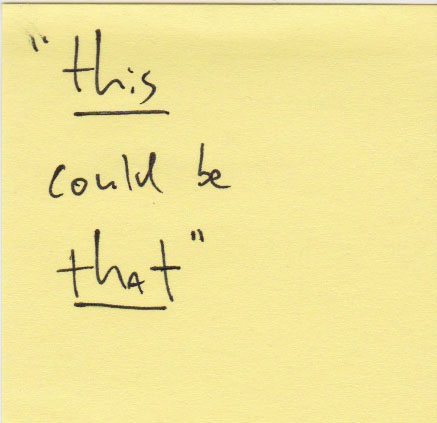 "this
could be
that"